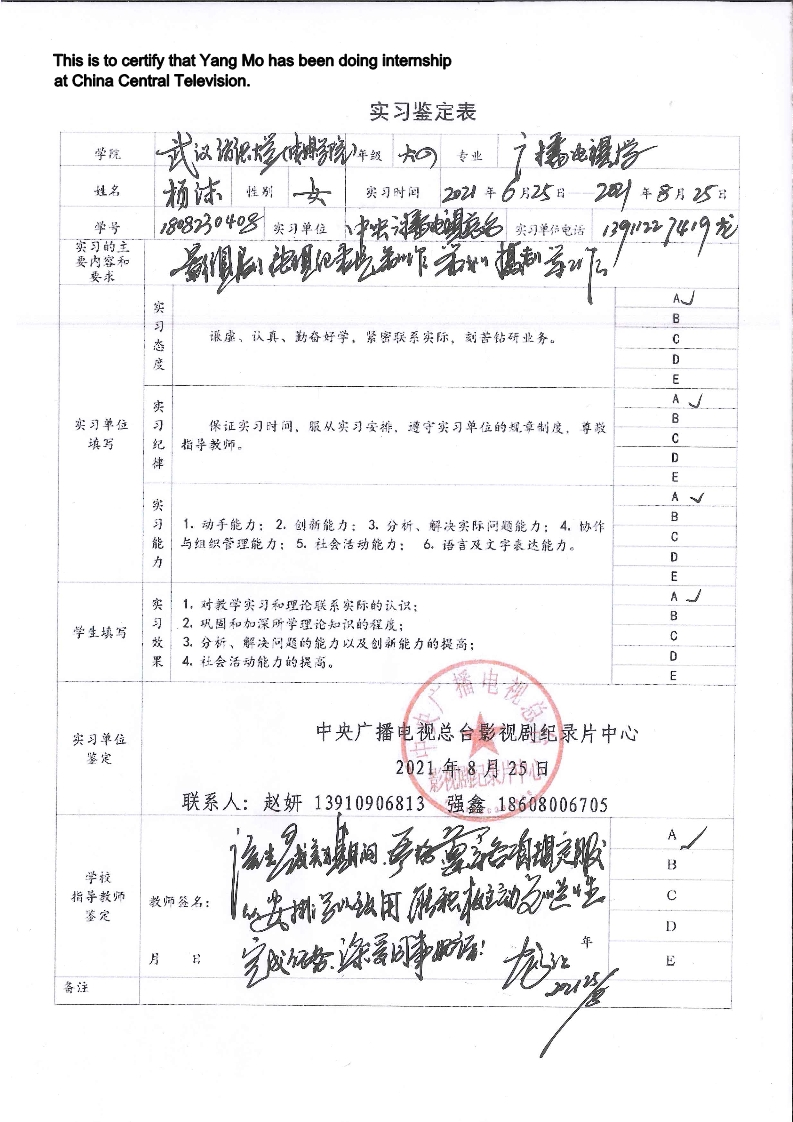 This is to certify that Yang Mo has been doing internship
at China Central Television.
实习鉴定表
学院 武汉 大学 年级 大四 专业 广播电视学
姓名 杨沫 性别 女 实习时间 2021 年 6 月 25 日 — 2021 年 8 月 25 日
学号 1808230408 实习单位 中央广播电视总台 实习单位电话 13911227419 龙
实习的主
要内容和
要求
实习单位
填写
实习态度
谦虚、认真、勤奋好学，紧密联系实际，刻苦钻研业务。
A ✓
B
C
D
E
实习纪律
保证实习时间，服从实习安排，遵守实习单位的规章制度，尊敬
指导教师。
A ✓
B
C
D
E
实习能力
1. 动手能力；2. 创新能力；3. 分析、解决实际问题能力；4. 协作
与组织管理能力；5. 社会活动能力； 6. 语言及文字表达能力。
A ✓
B
C
D
E
学生填写
实习效果
1. 对教学实习和理论联系实际的认识；
2. 巩固和加深所学理论知识的程度；
3. 分析、解决问题的能力以及创新能力的提高；
4. 社会活动能力的提高。
A ✓
B
C
D
E
实习单位
鉴定
中央广播电视总台
影视剧纪录片中心
中央广播电视总台影视剧纪录片中心
2021 年 8 月 25 日
联系人：赵妍 13910906813 强鑫 18608006705
学校
指导教师
鉴定
教师签名：
该生在实习期间 严格遵守各项规定服
从安排 学以致用 能积极主动
完成任务，深受同事好评！
年
月 日
A ✓
B
C
D
E
备注